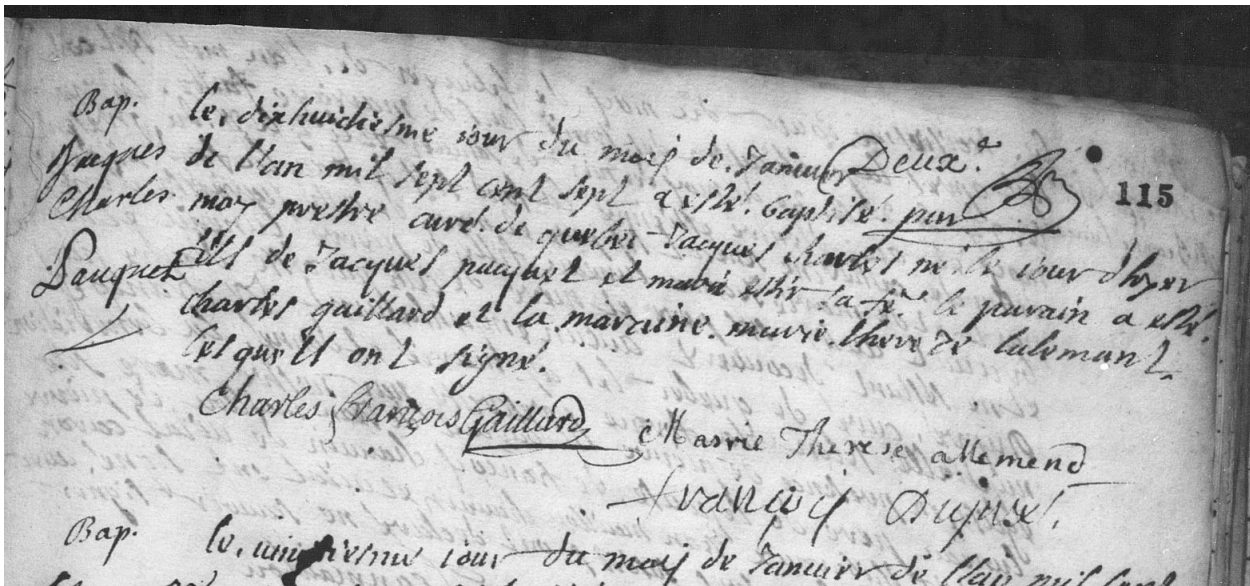 Bap. le, dixhuictiesme iour du mois de Januier Deux.e
115
Jacques de l'an mil sept cent sept a esté baptisé par
Charles moy prestre curé de quebec Jacques charles né le iour d'hyer
Pauquet fils de Jacques pacquet et marie sa fe. le parain a esté
charles gaillard et la maraine marie therese lalemant
lesquels ont signé.
Charles François Gaillard
Marie Therese allemend
françois Dupré
Bap. le, uintiesme iour du mois de Januier de l'an mil